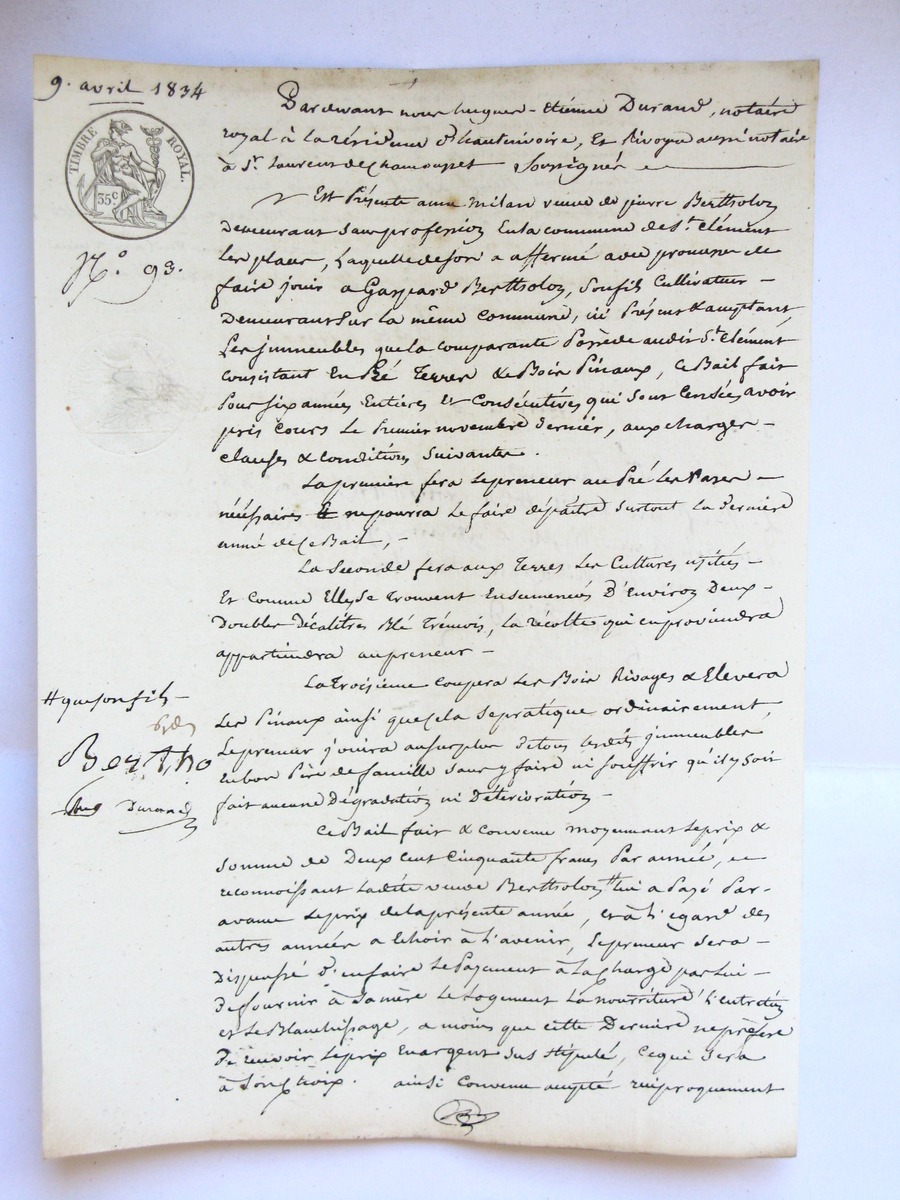 9. avril 1834
TIMBRE ROYAL.
35c
N.° 93.
Pardevant nous hugues-Etienne Durand, notaire
royal à la résidence d'hauterivoire, Et Rivoyre aussi notaire
à St. Laurent de Chamousset Soussignés
Est Présente anne milan veuve de pierre Bertholon
Demeurant sans profession En la commune de St. Clément
Les places, Laquelle de son a affermé avec promesse de
faire jouir a Gaspard Bertholon, Son fils Cultivateur
Demeurant Sur la même Commune, ici Présent & acceptant,
Les jmmeubles que la comparante Possède audit St. Clément
Consistant En Pré Terres & Bois Pinaux, Ce Bail fait
Pour six années Entières Et Consécutives qui Sont Censées avoir
pris Cours Le Premier novembre dernier, aux charges
clauses & conditions Suivantes.
La premiere fera Le preneur au Pré Les Rases
nécéssaires Et ne pourra Le faire dépaître surtout la dernière
année de Ce Bail,
La Seconde fera aux Terres Les Cultures usitées
Et Comme Elles Se Trouvent Ensemencées D'Environ Deux
Doubles Décalitres Blé Trémois, La récolte qui en proviendra
appartiendra au preneur
La Troisième Coupera Les Bois Rivages & Elevera
Les Pinaux ainsi que Cela Se pratique ordinairement,
Le preneur jouira au surplus de tous Lesdits jmmeubles
En bon Père de famille Sans y faire ni Souffrir qu'il y Soit
fait aucune Dégradation ni Détérioration
# que son fils
Bertho
Durand
Ce Bail fait & Convenu moyennant Le prix &
Somme de Deux Cent Cinquante francs Par année, ce
reconnoissant Ladite veuve Bertholon # lui a Payé Par
avance Le prix de la présente année, et à L'egard des
autres années a Echoir à L'avenir, Le preneur Sera
Dispensé d'en faire Le Payement à La Charge par Lui
De fournir à Sa mère Le Logement La nourriture L'entretien
et Le Blanchissage, a moins que cette Dernière ne préfère
De recevoir Le prix En argent Sus stipulé, Ce qui Sera
à Son Choix. ainsi Convenu accepté réciproquement